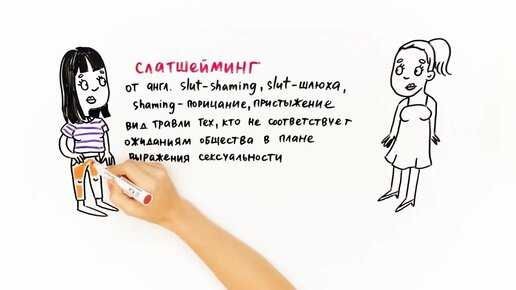 СЛАТШЕЙМИНГ
от англ. slut-shaming, slut-шлюха,
shaming-порицание, пристыжение
вид травли тех, кто не соответствует
ожиданиям общества в плане
выражения сексуальности